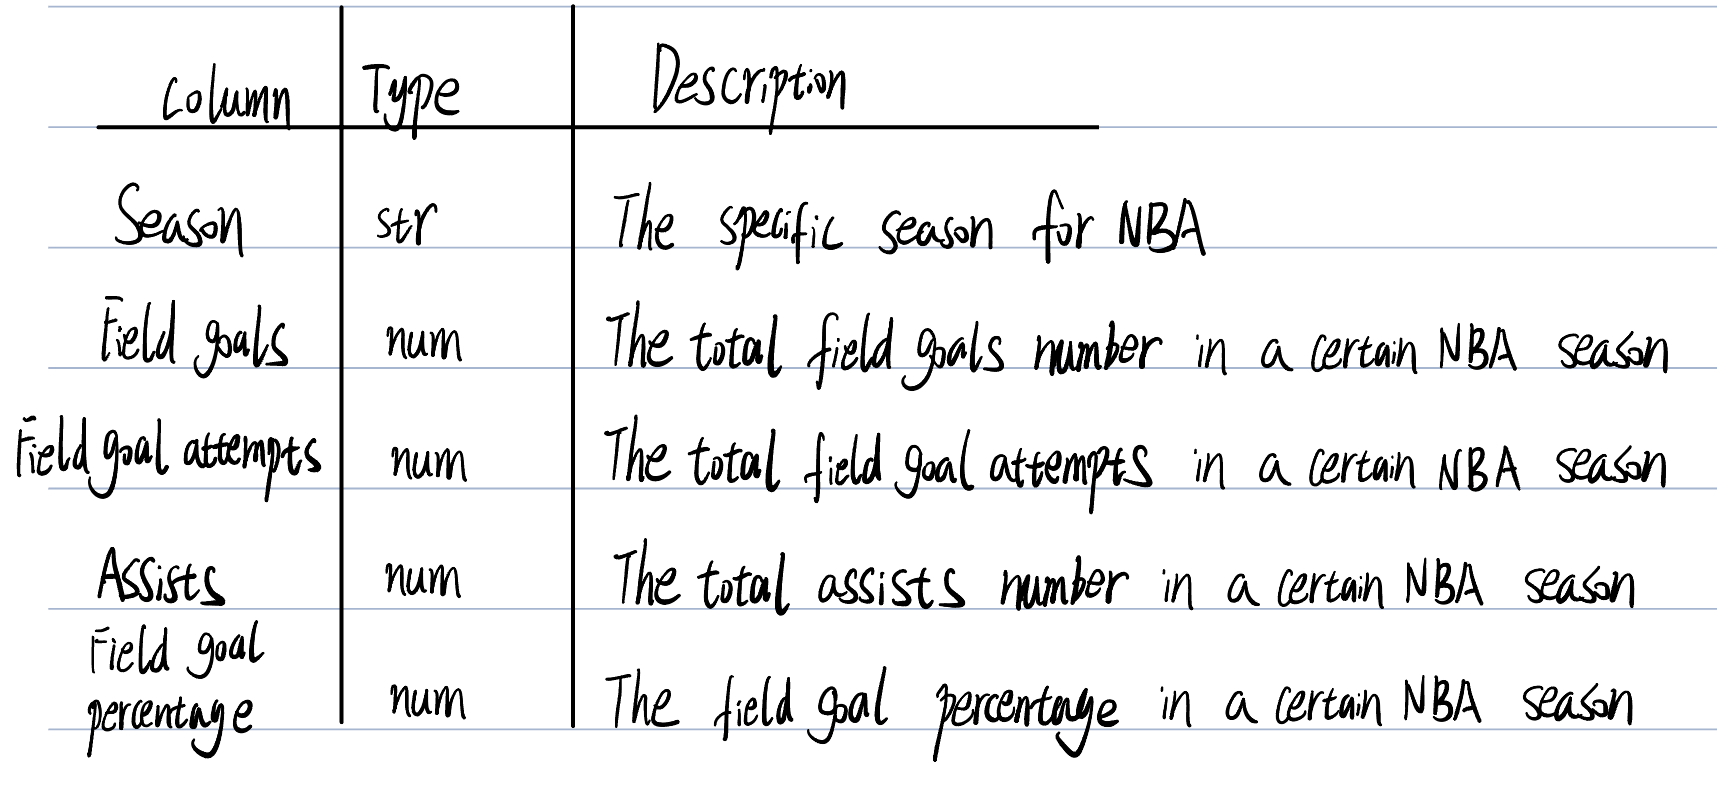 Column Type Description
Season str The specific season for NBA
Field goals num The total field goals number in a certain NBA season
Field goal attempts num The total field goal attempts in a certain NBA season
Assists num The total assists number in a certain NBA season
Field goal
percentage num The field goal percentage in a certain NBA season